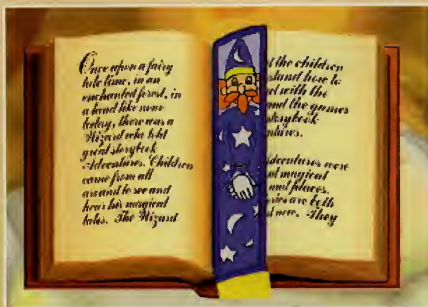 Once upon a fairy
tale time, in an
enchanted forest, in
a land like none
today, there was a
Wizard who told
great storybook
Adventures. Children
came from all
around to see and
hear his magical
tales. The Wizard
t the children
stand how to
with the
and the games
storybook
dventures were
magical
and places.
are both
They